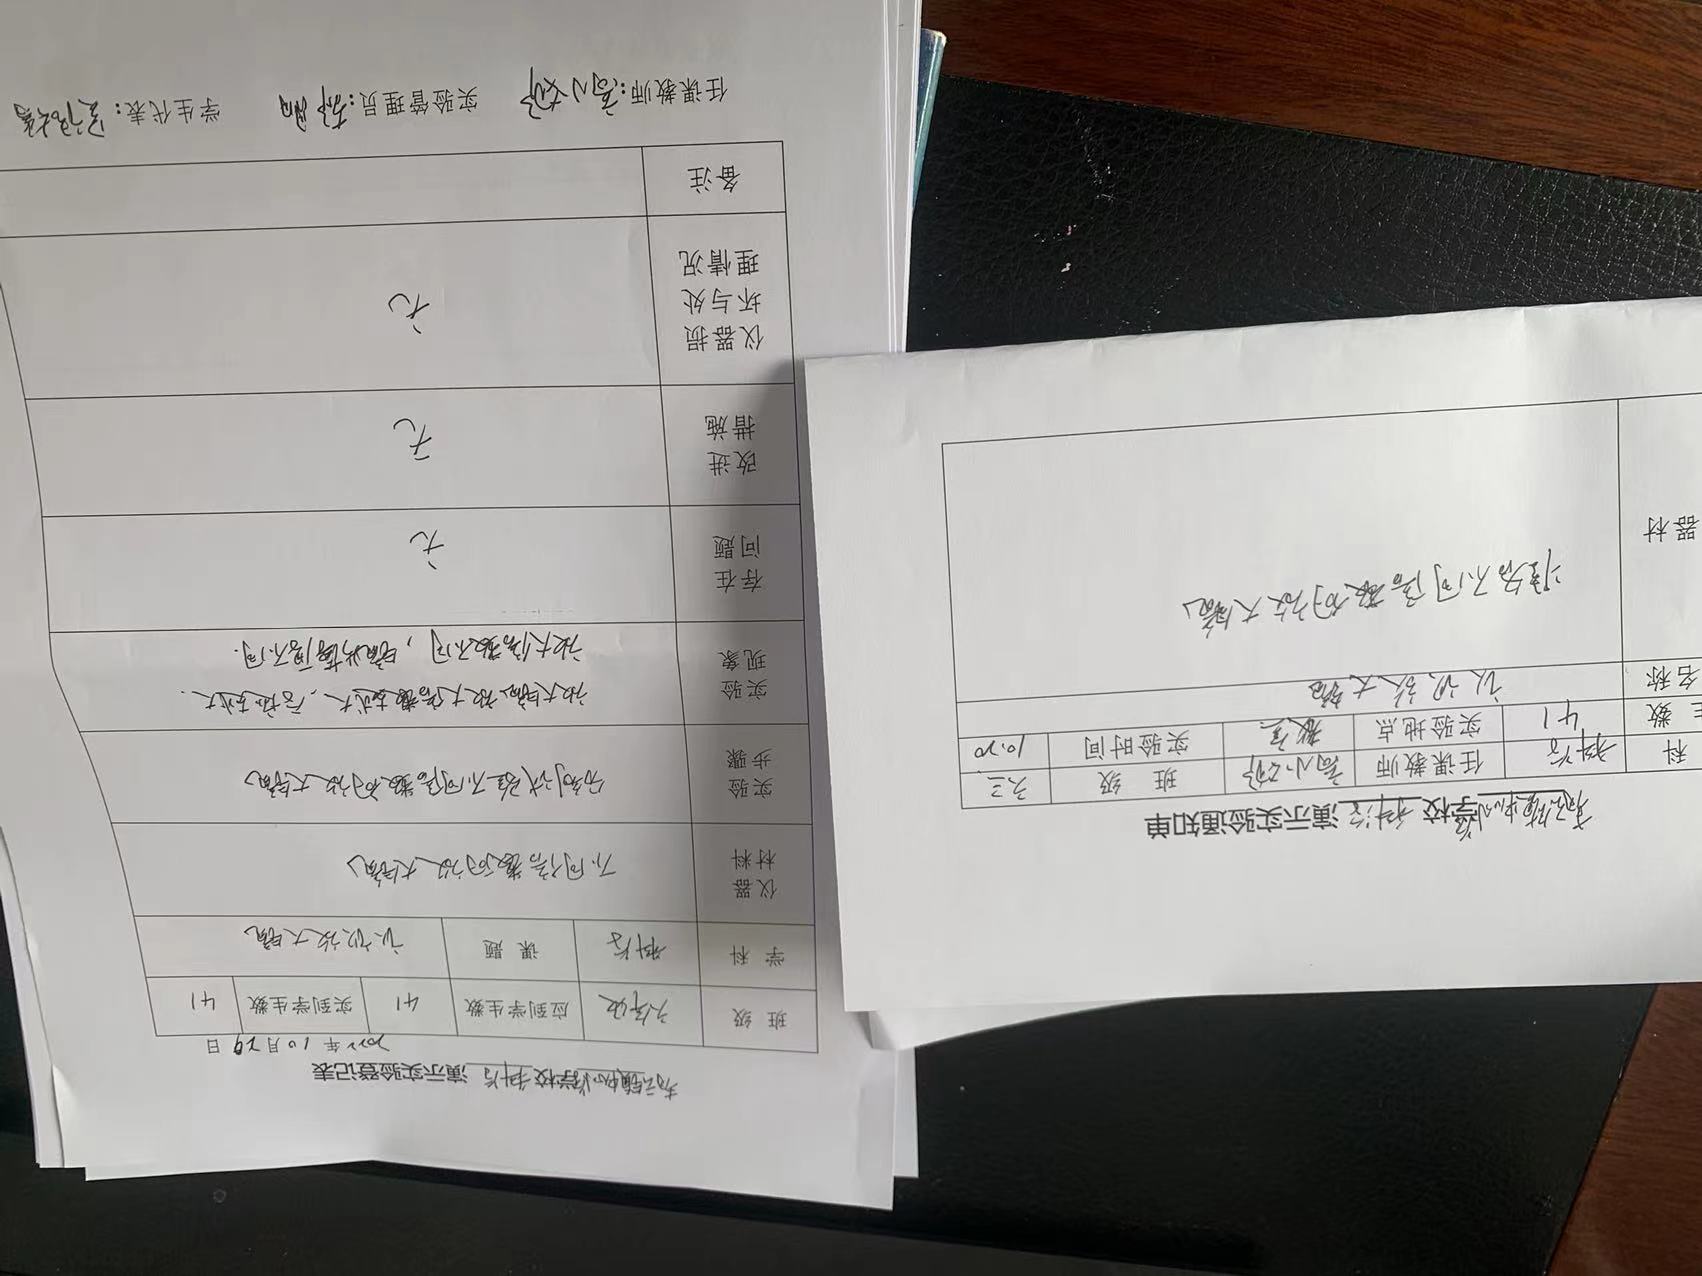 学校 科学 演示实验登记表
2022年10月29日
班 级 应到学生数 41 实到学生数 41
学 科 科学 课 题 认识放大镜
仪器材料 不同倍数的放大镜
实验步骤 分别试验不同倍数的放大镜
实验现象 放大镜放大倍数越大，
放大倍数不同，
存在问题 无
改进措施 无
仪器损坏与处理情况 无
备注
任课教师：高小 实验管理员： 学生代表：
学校 科学 演示实验通知单
科 科学 任课教师 高小 班 级
数 41 实验地点 教室 实验时间
名称 认识放大镜
器材 准备不同倍数的放大镜